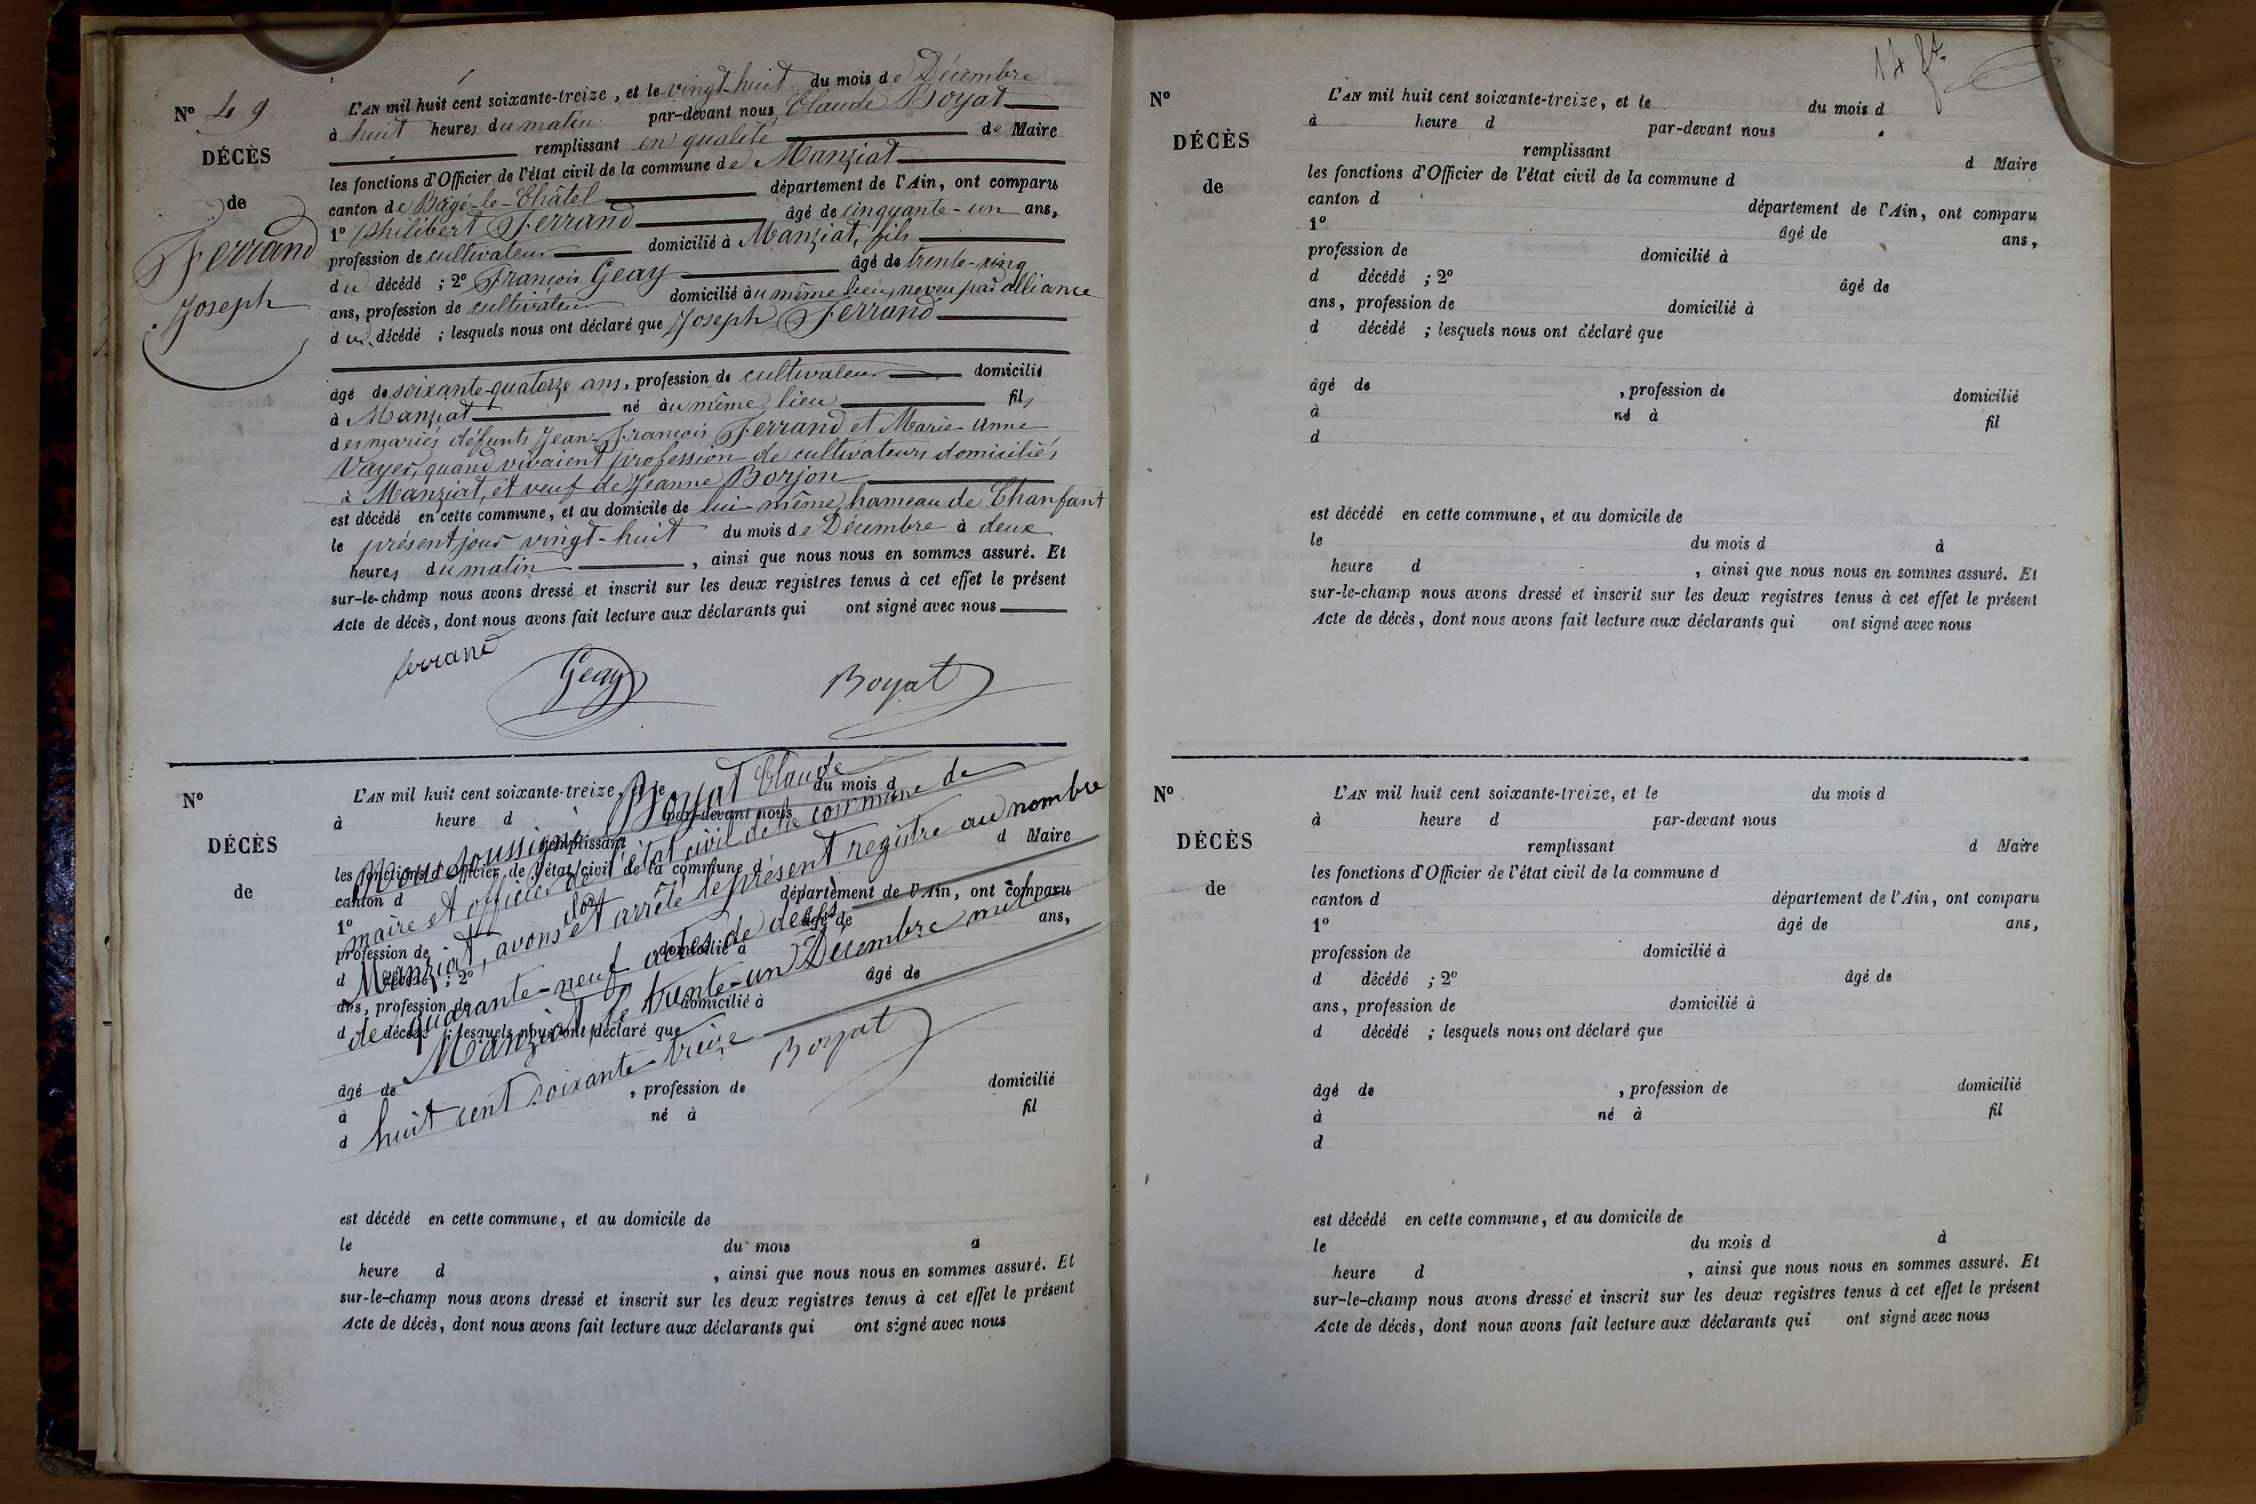 Nº 49
DÉCÈS
de
Ferrand
Joseph
L'AN mil huit cent soixante-treize, et le vingt-huit du mois de Décembre
à huit heures du matin par-devant nous Claude Boyat
remplissant en qualité de Maire
les fonctions d'Officier de l'état civil de la commune de Manziat
canton de Bâgé-le-Châtel département de l'Ain, ont comparu
1º Philibert Ferrand âgé de cinquante-un ans,
profession de cultivateur domicilié à Manziat, fils
du décédé ; 2º François Geay âgé de trente-cinq
ans, profession de cultivateur domicilié au même lieu, neveu par alliance
du décédé ; lesquels nous ont déclaré que Joseph Ferrand
âgé de soixante-quatorze ans, profession de cultivateur domicilié
à Manziat né au même lieu fils
des mariés défunts Jean-François Ferrand et Marie-Anne
Vayer, quand vivaient profession de cultivateurs domiciliés
à Manziat, et veuf de Jeanne Borjon
est décédé en cette commune, et au domicile de lui-même, hameau de Chanfant
le présent jour vingt-huit du mois de Décembre à deux
heures du matin, ainsi que nous nous en sommes assuré. Et
sur-le-champ nous avons dressé et inscrit sur les deux registres tenus à cet effet le présent
Acte de décès, dont nous avons fait lecture aux déclarants qui ont signé avec nous
ferrand
Geay
Boyat
Nº
DÉCÈS
de
L'AN mil huit cent soixante-treize, et le du mois d
à heure d par-devant nous
remplissant d Maire
les fonctions d'Officier de l'état civil de la commune d
canton d département de l'Ain, ont comparu
1º âgé de ans,
profession de domicilié à
d décédé ; 2º âgé de
ans, profession de domicilié à
d décédé ; lesquels nous ont déclaré que
âgé de , profession de domicilié
à né à fil
d
Nous soussigné Boyat Claude
maire et officier de l'état civil de la commune de
Manziat, avons clos et arrêté le présent registre au nombre
de quarante-neuf actes de décès
Manziat, le trente-un Décembre mil
huit cent soixante-treize
Boyat
est décédé en cette commune, et au domicile de
le du mois à
heure d , ainsi que nous nous en sommes assuré. Et
sur-le-champ nous avons dressé et inscrit sur les deux registres tenus à cet effet le présent
Acte de décès, dont nous avons fait lecture aux déclarants qui ont signé avec nous
Nº
DÉCÈS
de
L'AN mil huit cent soixante-treize, et le du mois d
à heure d par-devant nous
remplissant d Maire
les fonctions d'Officier de l'état civil de la commune d
canton d département de l'Ain, ont comparu
1º âgé de ans,
profession de domicilié à
d décédé ; 2º âgé de
ans, profession de domicilié à
d décédé ; lesquels nous ont déclaré que
âgé de , profession de domicilié
à né à fil
d
est décédé en cette commune, et au domicile de
le du mois d à
heure d , ainsi que nous nous en sommes assuré. Et
sur-le-champ nous avons dressé et inscrit sur les deux registres tenus à cet effet le présent
Acte de décès, dont nous avons fait lecture aux déclarants qui ont signé avec nous
Nº
DÉCÈS
de
L'AN mil huit cent soixante-treize, et le du mois d
à heure d par-devant nous
remplissant d Maire
les fonctions d'Officier de l'état civil de la commune d
canton d département de l'Ain, ont comparu
1º âgé de ans,
profession de domicilié à
d décédé ; 2º âgé de
ans, profession de domicilié à
d décédé ; lesquels nous ont déclaré que
âgé de , profession de domicilié
à né à fil
d
est décédé en cette commune, et au domicile de
le du mois d à
heure d , ainsi que nous nous en sommes assuré. Et
sur-le-champ nous avons dressé et inscrit sur les deux registres tenus à cet effet le présent
Acte de décès, dont nous avons fait lecture aux déclarants qui ont signé avec nous